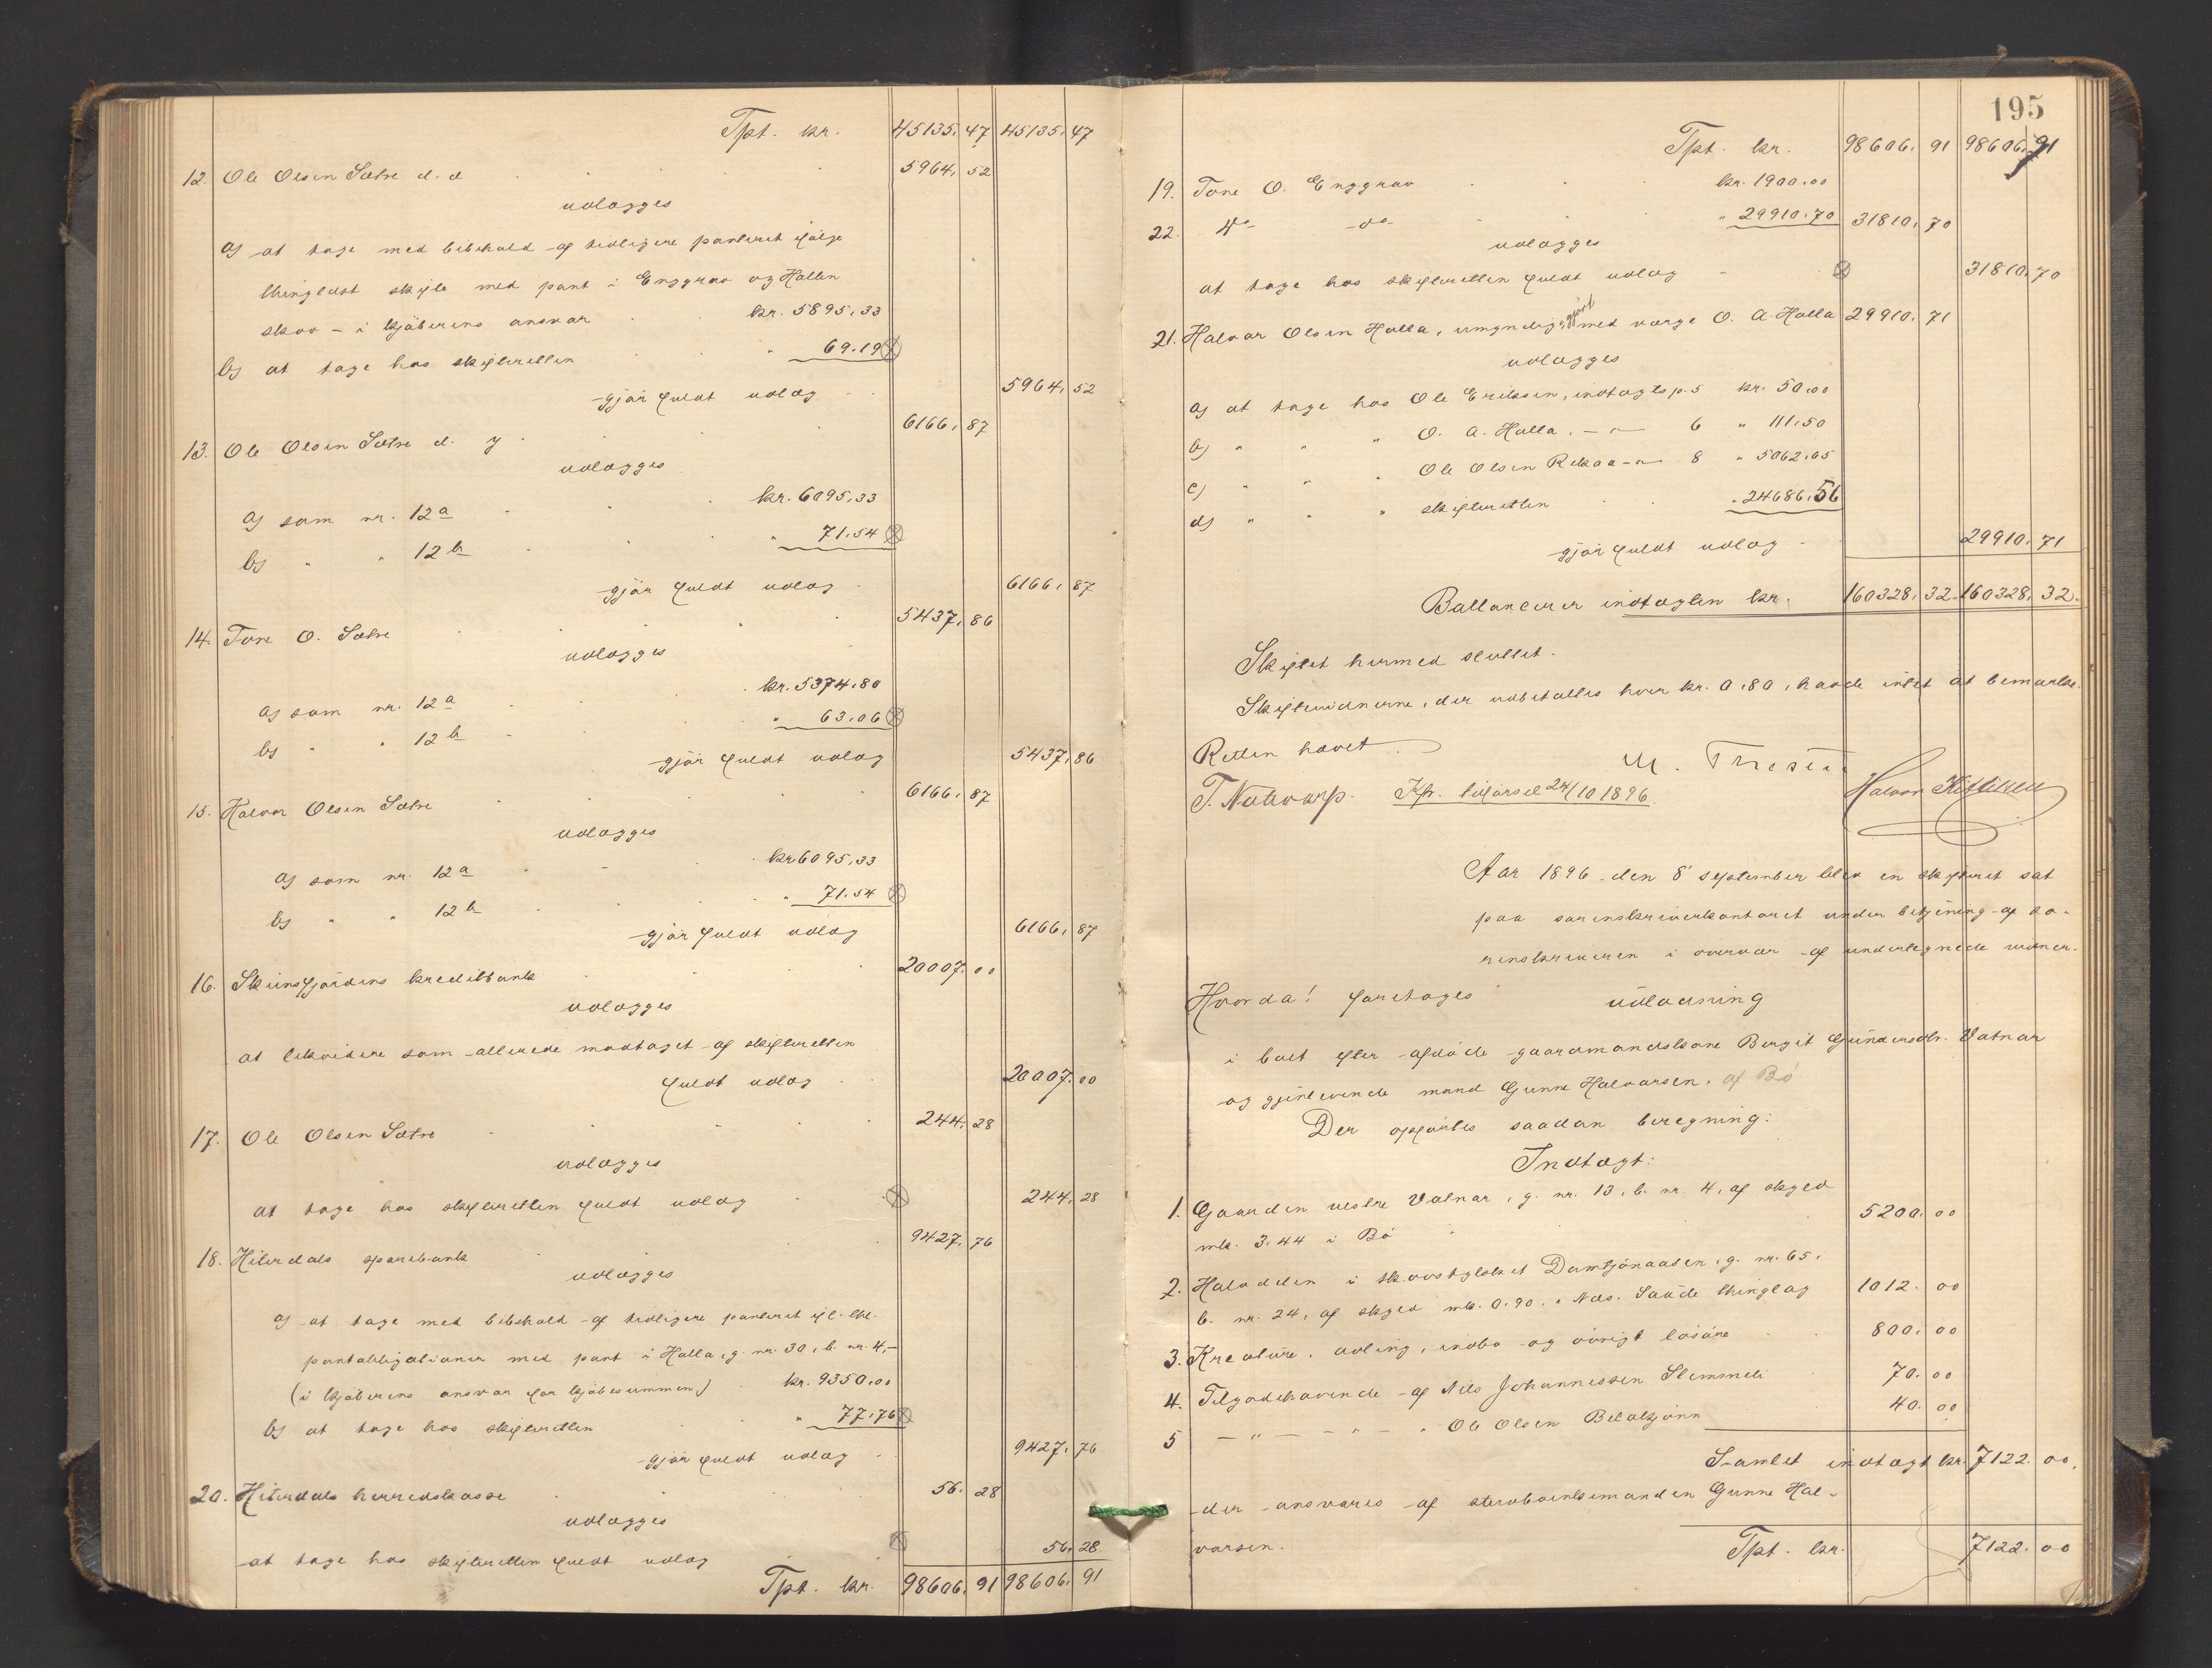 Tpt. kr. 45135,47 45135,47
12. Ole Olsen Sætre d. æ 5964,52
udlægges
a) at tage med bibehold af tidligere panteret ifølge
thinglæst skjøte med pant i Enggrav og Hallen
skov – i kjøberens ansvar kr. 5895,33
b) at tage hos skifteretten " 69.19
gjør fuldt udlæg 5964,52
13. Ole Olsen Sætre d. y 6166,87
udlægges
a) som nr. 12a kr. 6095,33
b) " " 12b " 71.54
gjør fuldt udlæg 6166,87
14. Tone O. Sætre 5437,86
udlægges
a) som nr. 12a kr. 5374,80
b) " " 12b " 63.06
gjør fuldt udlæg 5437,86
15. Halvor Olsen Sætre 6166,87
udlægges
a) som nr. 12a kr 6095,33
b) " " 12b " 71.54
gjør fuldt udlæg 6166,87
16. Skiensfjordens kreditbank 20007.00
udlægges
at likvidere som allerede modtaget af skifteretten
fuldt udlæg 20007.00
17. Ole Olsen Sætre 244,28
udlægges
at tage hos skifteretten fuldt udlæg 244,28
18. Hiterdals sparebank 9427,76
udlægges
a) at tage med bibehold af tidligere panteret ifl. thl.
pantobligationer med pant i Halla, g. nr. 30, b. nr. 4, –
(i kjøberens ansvar for kjøbesummen) kr. 9350.00
b) at tage hos skifteretten " 77,76
gjør fuldt udlæg 9427,76
20. Hiterdals herredskasse 56.28
udlægges
at tage hos skifteretten fuldt udlæg 56.28
Tpt. kr. 98606,91 98606,91
195
Tpt. kr. 98606,91 98606,91
19. Tone O. Enggrav kr. 1900.00
22. do do " 29910.70 31810,70
udlægges
at tage hos skifteretten fuldt udlæg 31810,70
21. Halvor Olsen Halla, umyndiggjort med værge O. A. Halla 29910,71
udlægges
a) at tage hos Ole Eriksen, indtægts p. 5 kr. 50.00
b) " " " O. A. Halla, – " – 6 " 111.50
c) " " " Ole Olsen Rekaa – " – 8 " 5062.65
d) " " " skifteretten " 24686.56
gjør fuldt udlæg 29910.71
Ballancerer indtægten kr. 160328,32 160328,32
Skiftet hermed sluttet.
Skiftevidnerne, der udbetaltes hver kr. 0.80, havde intet at bemærke.
Retten hævet
T. Natvarp. Kfr. tilførsel 24/10 1896.
Aar 1896 den 8' september blev en skifteret sat
paa sorenskriverkontoret under betjening af so-
renskriveren i overvær af undertegnede vidner.
Hvorda! foretoges udlodning
i boet efter afdøde gaardmandskone Bergit Gundersdtr. Vatnar
og gjenlevende mand Gunne Halvorsen, af Bø
Der opførtes saadan beregning:
Indtægt:
1. Gaarden vestre Vatnar, g. nr. 13, b. nr. 4, af skyld
mk. 3.44 i Bø 5200.00
2. Halvdelen i skovstykket Damtjønaasen, g. nr. 65,
b. nr. 24, af skyld mk. 0.90, i Næs. Saude thinglag 1012.00
3. Kreature, avling, indbo og øvrigt løsøre 800.00
4. Tilgodehavende af Nils Johannessen Slemmeli 70.00
5 – " – – " – " Ole Olsen 40.00
Samlet indtægt kr. 7122.00,
der ansvares af stervboenkemanden Gunne Hal-
vorsen.
Tpt. kr. 7122.00